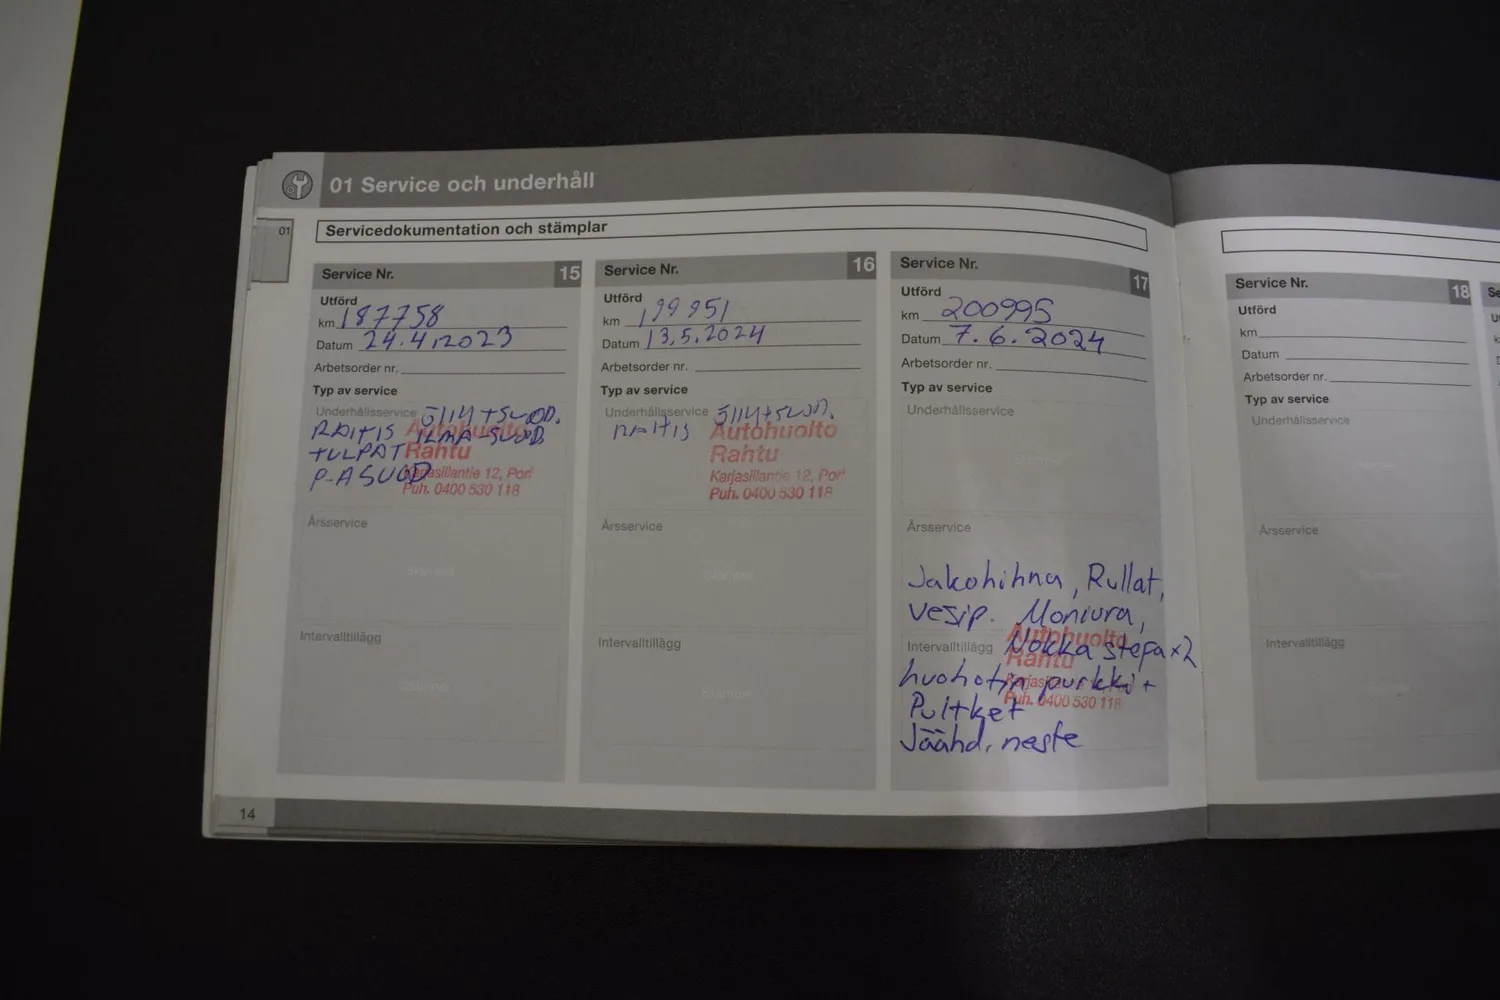 01 Service och underhåll
01
Servicedokumentation och stämplar
Service Nr. 15
Utförd
km 187758
Datum 24.4.2023
Arbetsorder nr.
Typ av service
Underhållsservice ÖLJY+SUOD.
RAITIS ILMA-SUOD.
TULPAT
P-ASUOD
Autohuolto
Rahtu
Karjasillantie 12, Pori
Puh. 0400 530 118
Årsservice
Stämpel
Intervalltillägg
Stämpel
Service Nr. 16
Utförd
km 199951
Datum 13.5.2024
Arbetsorder nr.
Typ av service
Underhållsservice ÖLJY+SUOD.
RAITIS
Autohuolto
Rahtu
Karjasillantie 12, Por
Puh. 0400 530 118
Årsservice
Stämpel
Intervalltillägg
Stämpel
Service Nr. 17
Utförd
km 200995
Datum 7.6.2024
Arbetsorder nr.
Typ av service
Underhållsservice
Årsservice
Jakohihna, Rullat,
vesip. Moniura,
Intervalltillägg Nokka stefa x2
huohotin purkki +
Putket
Jäähd. neste
Autohuolto
Rahtu
Karjasillantie 12, Por
Puh. 0400 530 118
Service Nr. 18
Utförd
km
Datum
Arbetsorder nr.
Typ av service
Underhållsservice
Stämpel
Årsservice
Stämpel
Intervalltillägg
14